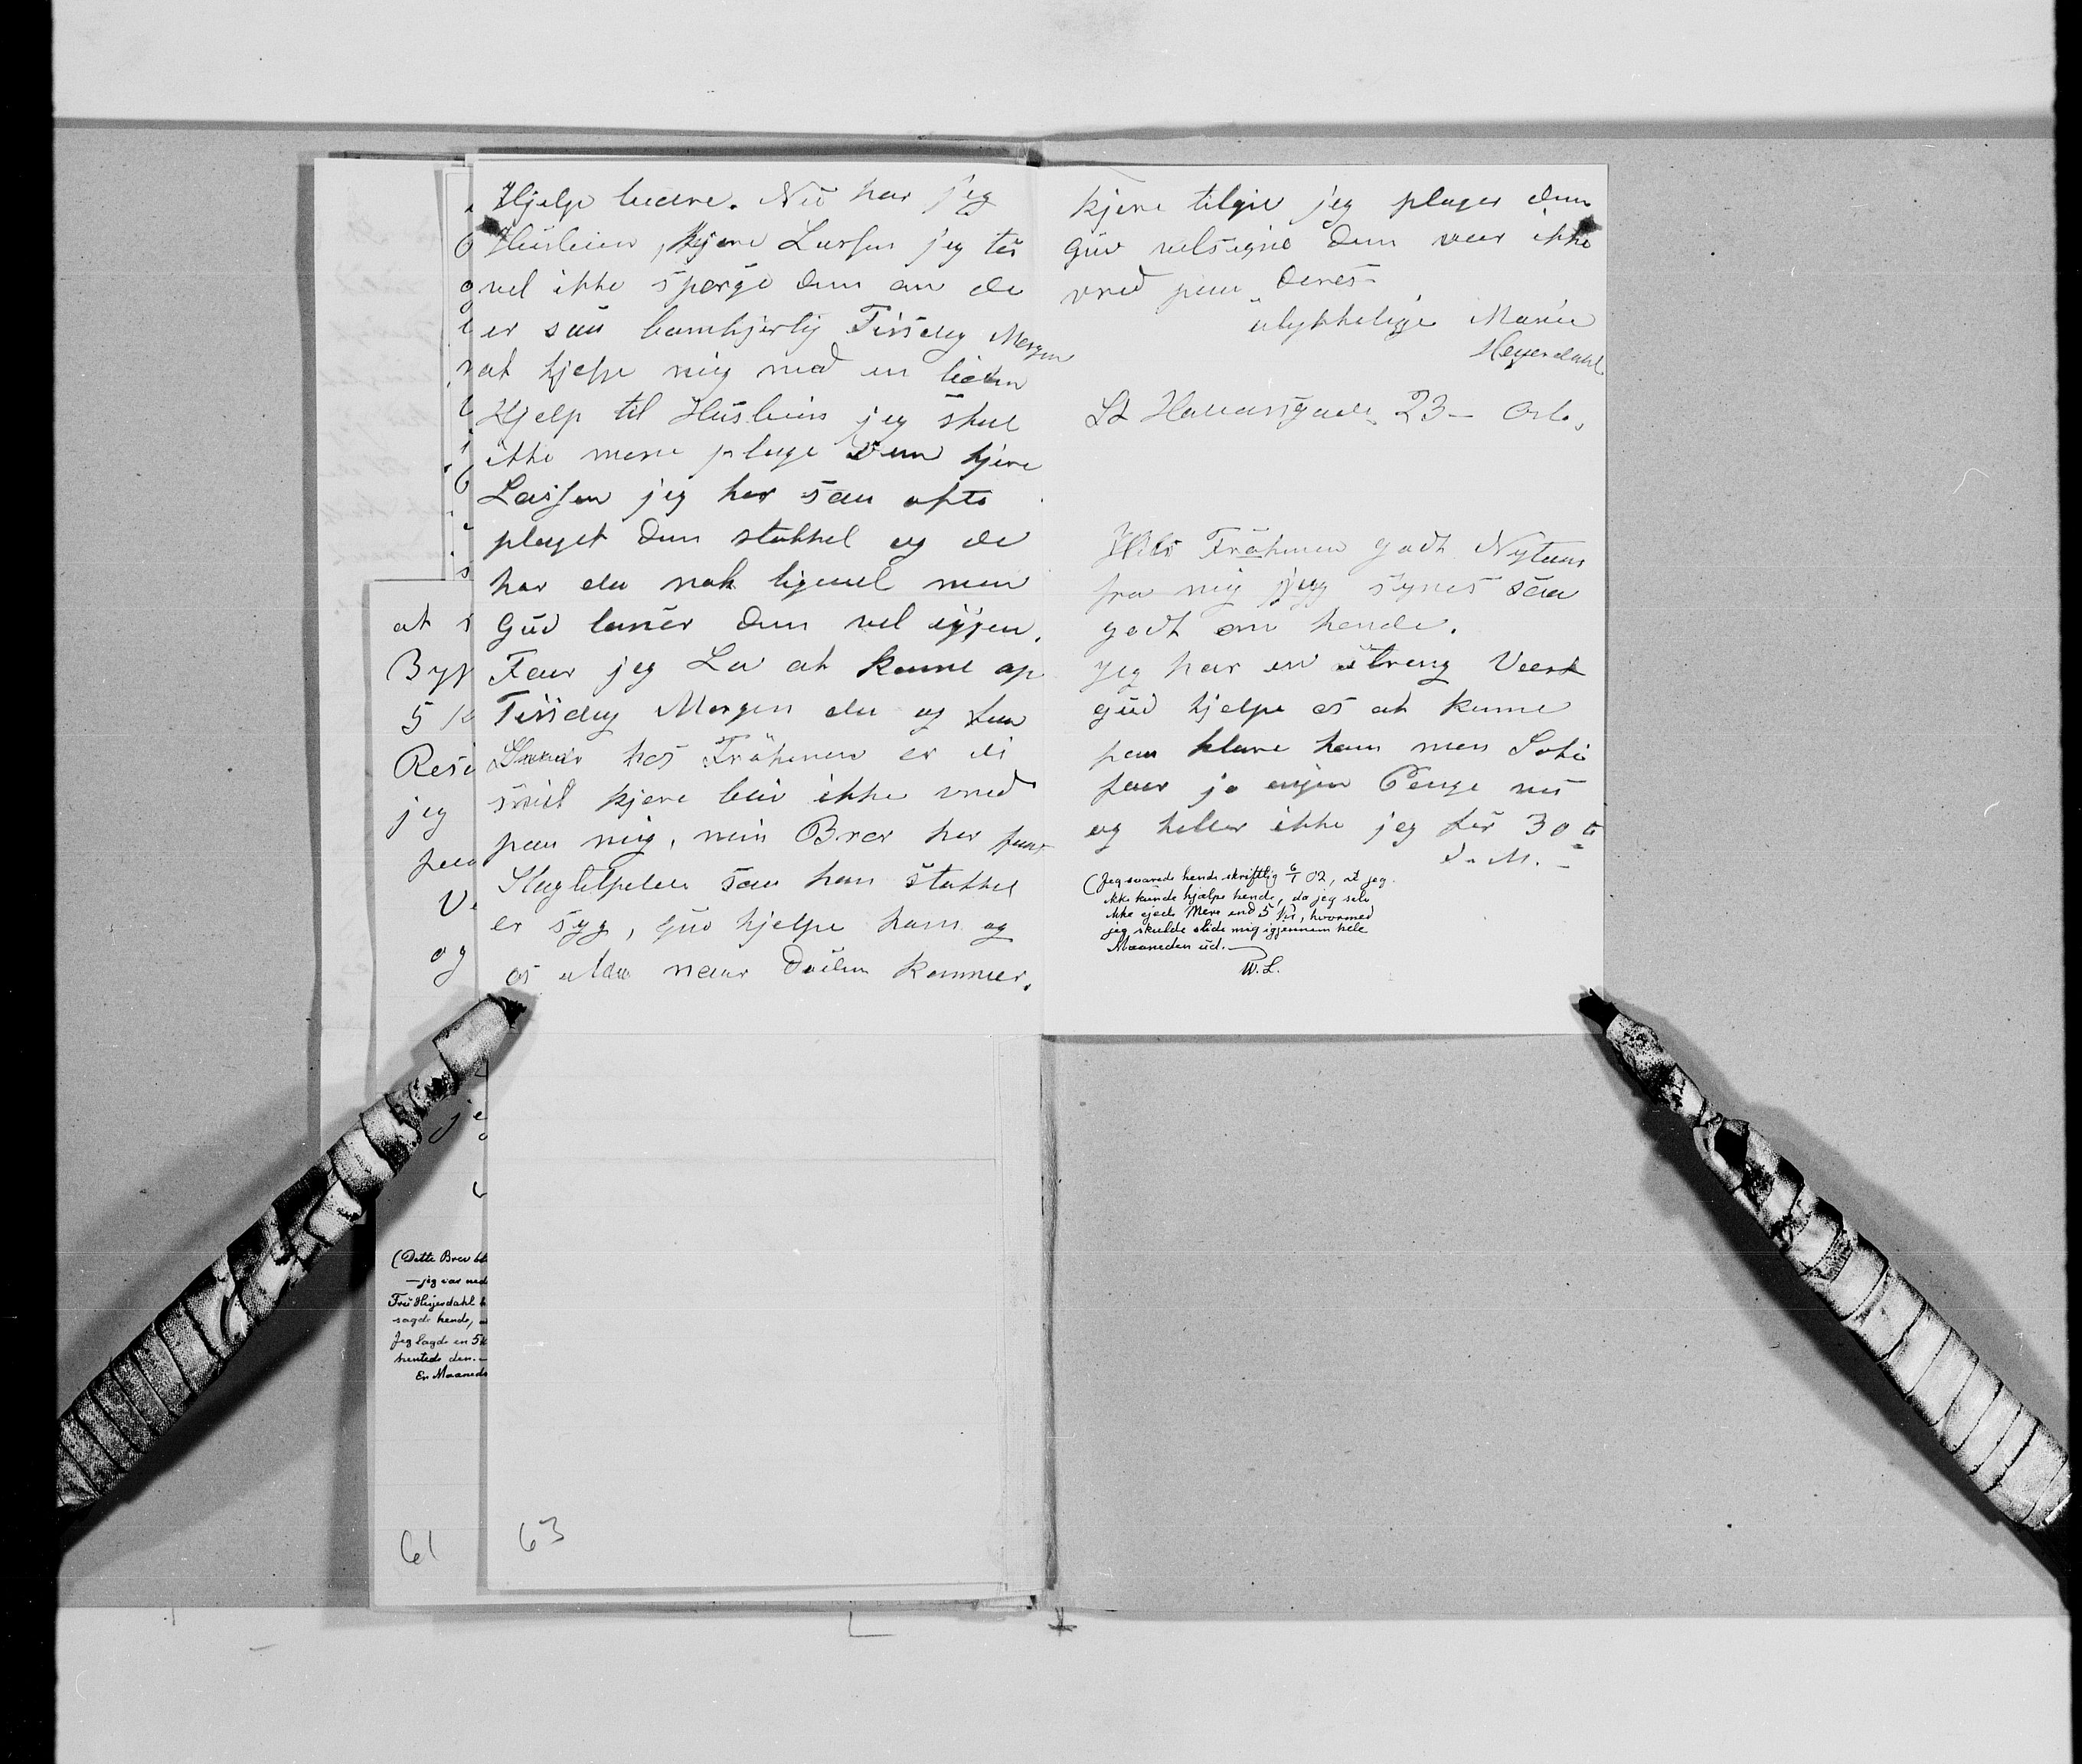 Hjelp bedre. Nu har jeg
Husleien, kjere Lassen jeg tør
vel ikke spørge dem om de
er saa barnhjertig Tirsdag Morgen
at hjelpe mig med en liden
Hjelp til Husleien jeg skal
ikke mere plage Dem kjere
Lassen jeg har saa ofte
plaget dem stakkel og de
har da nok ligevel men
Gud lønner dem vel igjen.
Faar jeg Lov at komme op
Tirsdag Morgen da og faa
Svaar hos Frøknen er di
snil kjere bliv ikke vred
paa mig, min Bror har faat
Slagtilfelde saa han stakkel
er syg, gud hjelpe ham og
os alle naar Døden kommer.
kjere tilgiv jeg plager dem
Gud velsigne dem vær ikke
vred paa Deres
ulykkelige Marie
Heyerdahl
St Halvardsgade 23 — Oslo,
Hils Frøknen godt Nytaar
fra mig jeg synes saa
godt om hende.
Jeg har en streng Vært
gud hjelpe os at kunne
faa klare ham men
faar jo ingen Penge nu
og heller ikke jeg før 30 te
d. M. —
(Jeg svarede hende skriftlig 6/1 02, at jeg
ikke kunde hjælpe hende, da jeg selv
ikke ejede Mere end 5 Kr, hvormed
jeg skulde slide mig igjennem hele
Maaneden ud. —
W. L.
at
Byg
5 K
jeg
og
(Dette Brev
— jeg var ned
Fru Heyerdahl
sagde hende,
Jeg lagde en 5 K
hentede den. —
En Maaneds
61
63